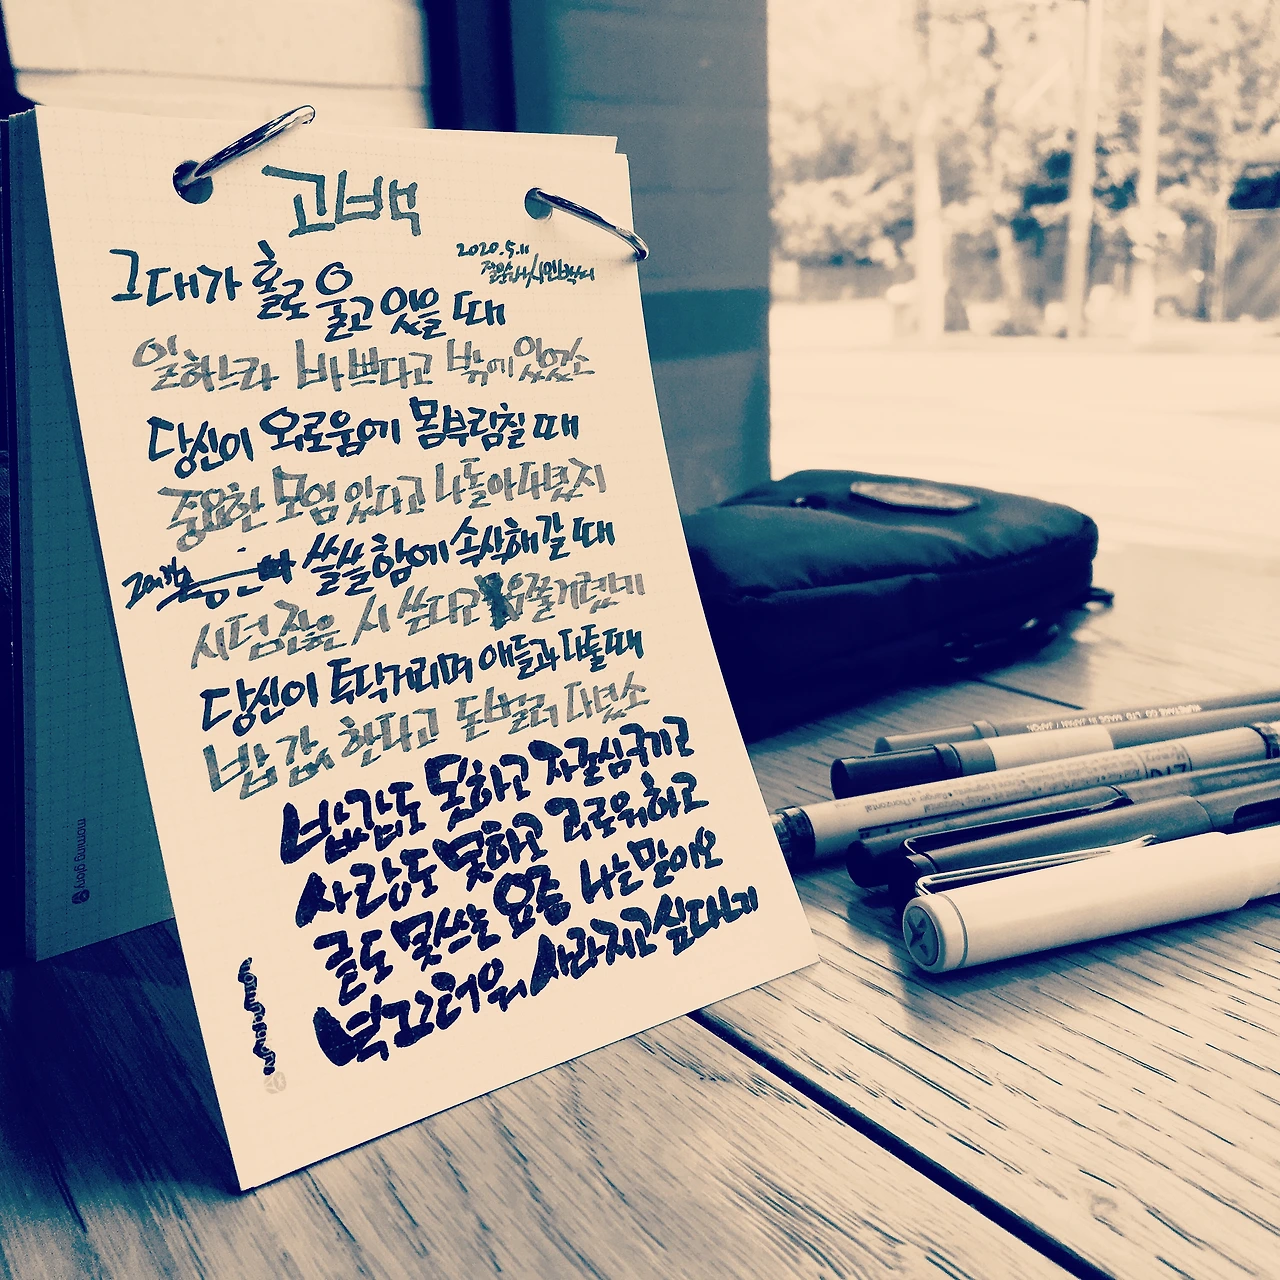 고백
2020.5.11
그대가 홀로 울고 있을 때
일하느라 바쁘다고 밖에 있었소
당신이 외로움에 몸부림칠 때
중요한 모임 있다고 나돌아다녔지
쓸쓸함에 속상해할 때
시덤잖은 시 쓴다고 쭐게렸네
당신이 투닥거리며 애들과 다툴 때
밥값 한다고 돈 벌러 다녔소
밥값도 못하고 자존심 구기고
사랑도 못하고 외로워하고
글도 못 쓰는 요즘 나는 말이오
부끄러워 사라지고 싶다네
morning glory
morning glory
KURETAKE CO. LTD MADE IN JAPAN / JAPON